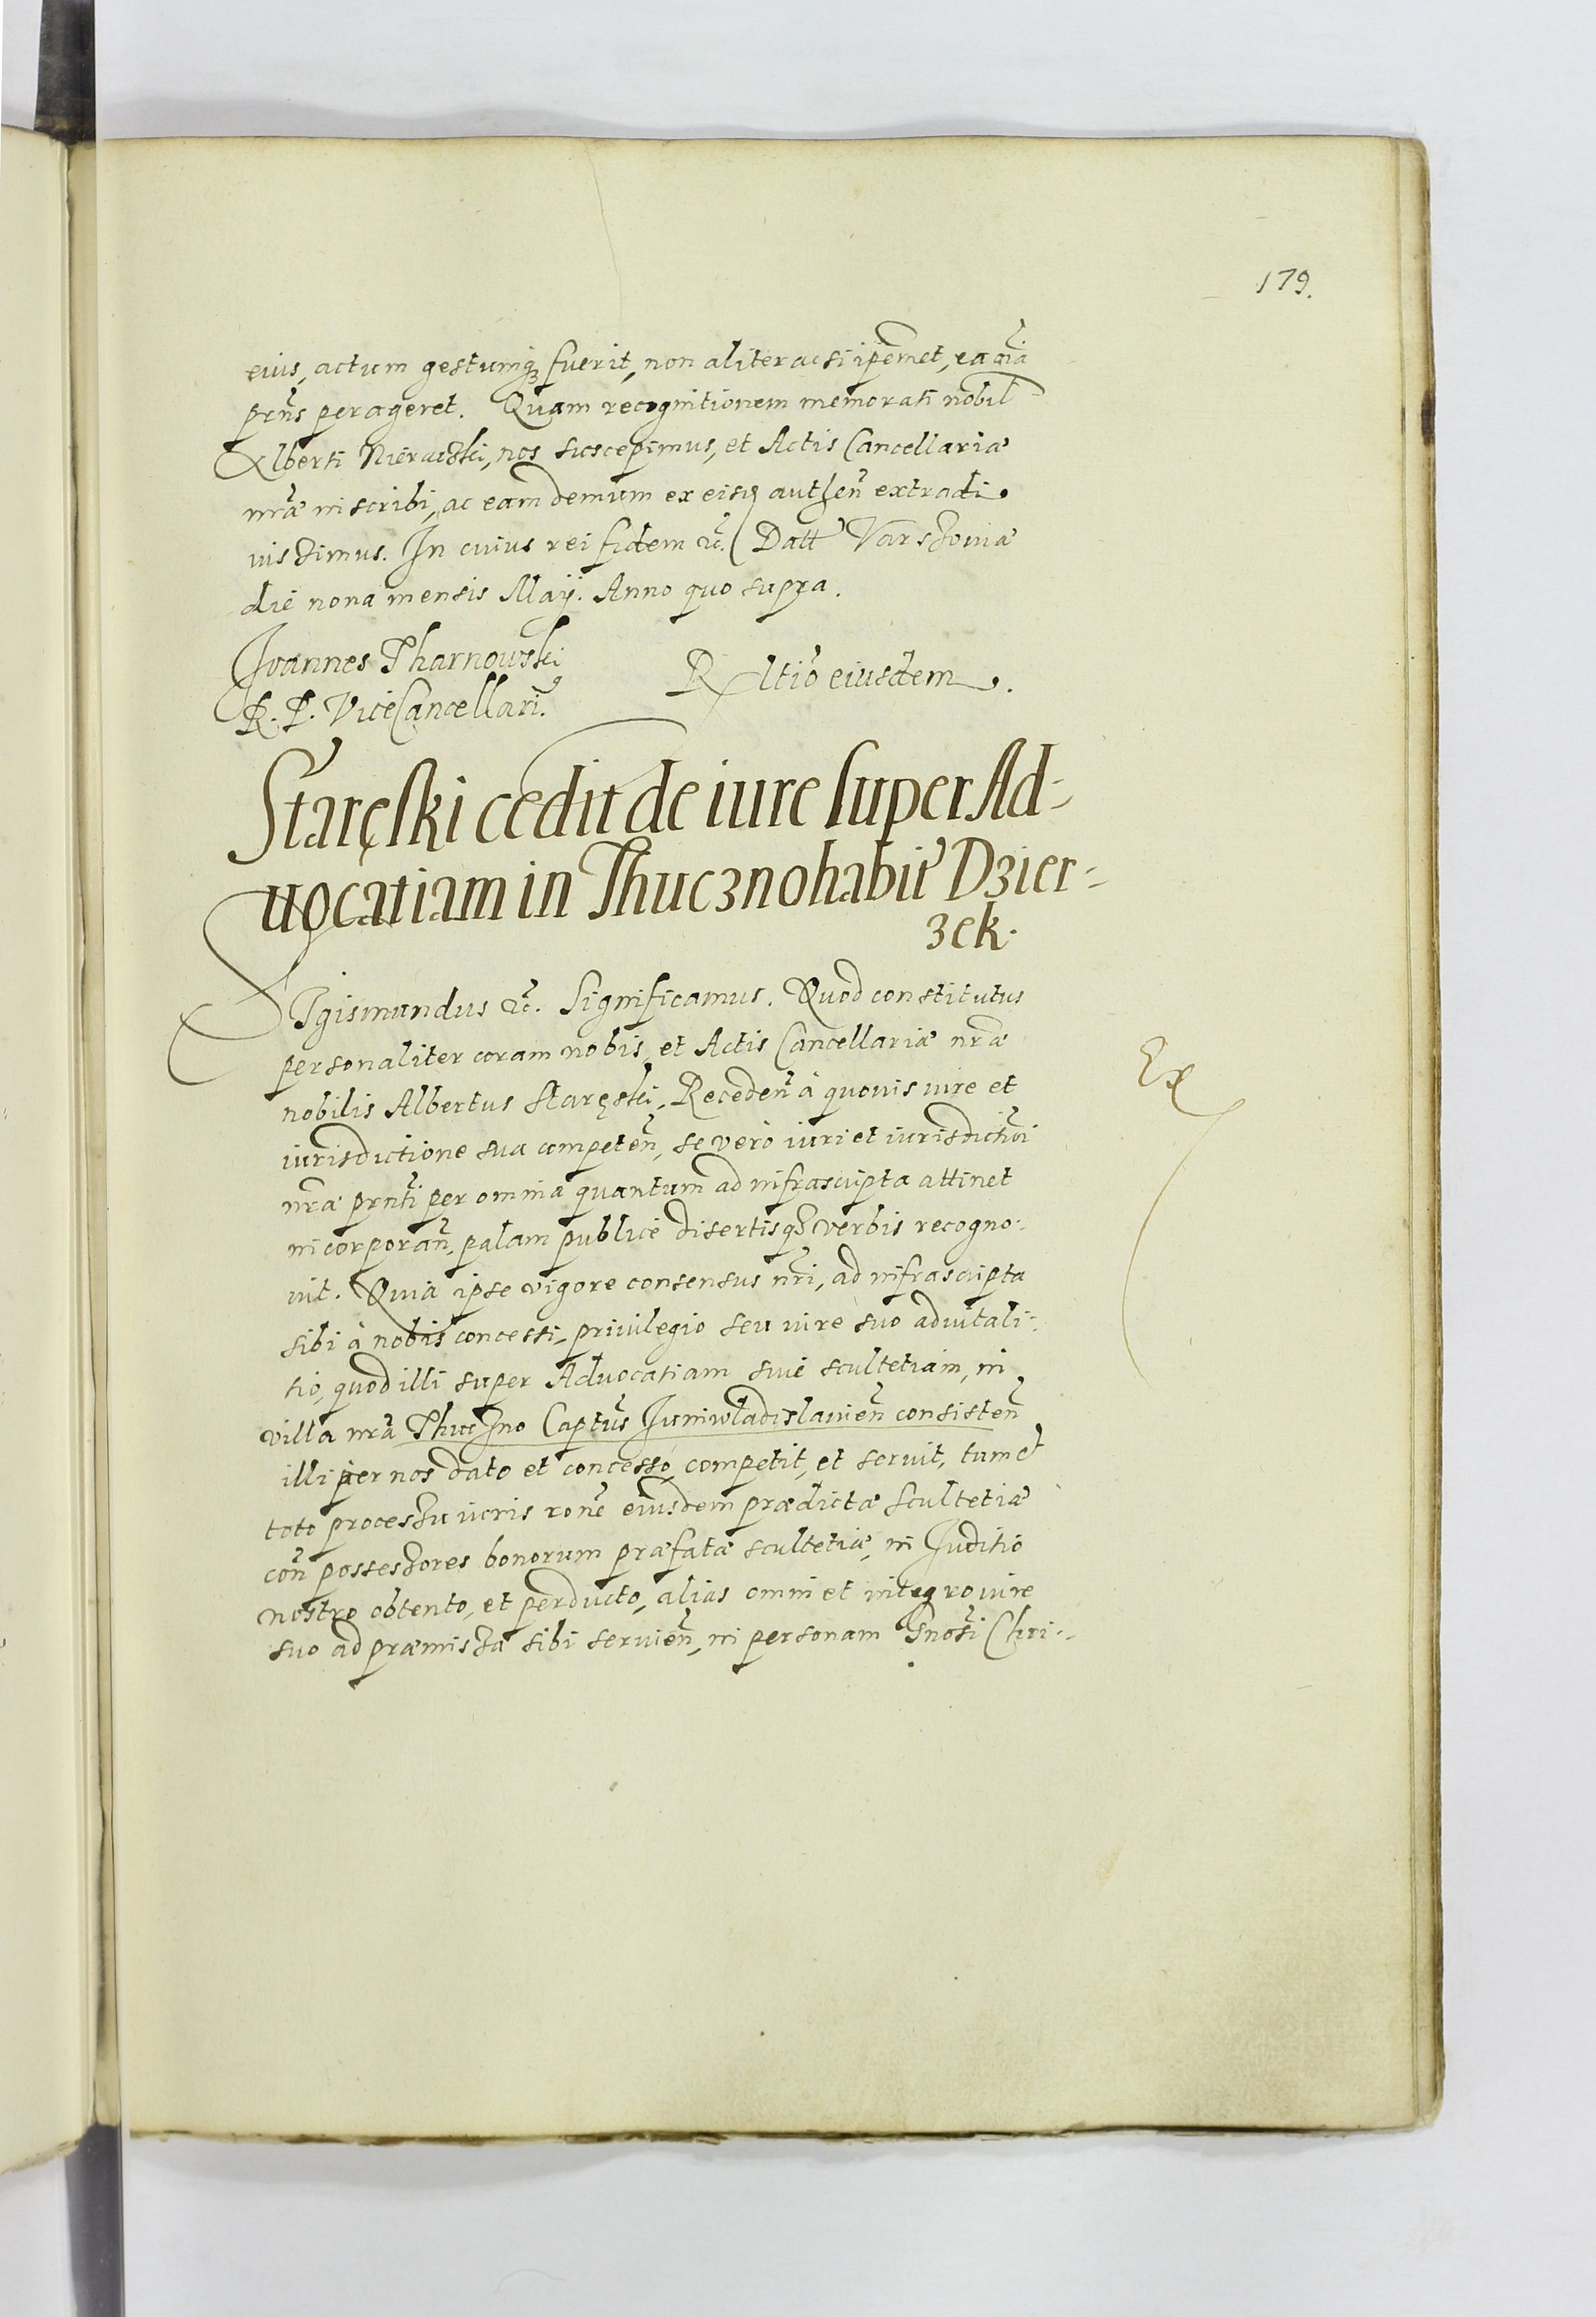 179.
eius, actum gestumq; fuerit, non aliter ac si ipēmet, ea oīa
prn̄s perageret. Quam recognitionem memorati nobil
Alberti Nieraczski, nos suscepimus, et Actis Cancellariæ
nr̄æ inscribi, ac eam demum ex eisd authen̄ extradi
iussimus. In cuius rei fidem &c. Datt Varssouiæ
die nona mensis Maÿ. Anno quo supra.
Joannes Tharnowski
R. P. ViceCancellari9.
Rltio eiusdem.
Staręski cedit de iure super Ad-
uocatiam in Thuczno habit Dzier-
zek.
SIgismundus &c. Significamus. Quod constitutus
personaliter coram nobis, et Actis Cancellariæ nr̄æ
nobilis Albertus Staręski, Receden̄ à quouis iure et
iurisdictione sua competen̄, se vero iuri et iurisdictio͞i
nr̄æ prn̄ti per omnia quantum ad infrascripta attinet
incorporan̄, palam publicè disertisq; verbis recogno-
uit. Quia ipse vigore consensus nr̄i, ad infrascripta
sibi à nobis concessi, priuilegio seu iure suo aduitali-
tio, quod illi super Aduocatiam siuè scultetiam, in
villa nr̄a Thuczno Captus Juniwladislauien̄ consisten̄
illi per nos dato et concesso, competit, et seruit, tum et
toto processu iuris ron̄e eiusdem prædictæ Scultetiæ
con̄ possessores bonorum præfatæ scultetiæ, in Juditio
nostro obtento, et perducto, alias omni et integro iure
suo ad præmissa sibi seruien̄, in personam Gnosi Chri-
Ex